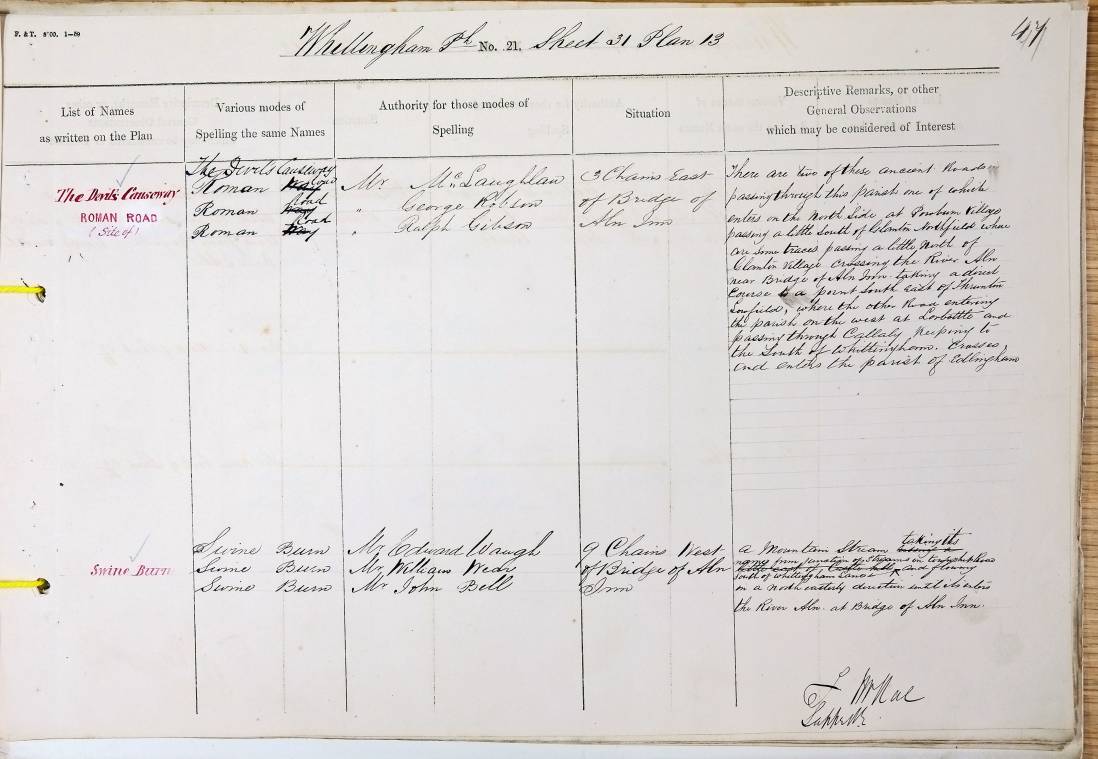 F. & T. 8'00. 1—59
Whittingham Ph No. 21. Sheet 31 Plan 13
47
List of Names
as written on the Plan
Various modes of
Spelling the same Names
Authority for those modes of
Spelling
Situation
Descriptive Remarks, or other
General Observations
which may be considered of Interest
The Devils Causeway
ROMAN ROAD
(Site of)
The Devils Causeway
Roman Way Road
Roman Way Road
Roman Way Road
Mr McLaughlan
" George Robson
" Ralph Gibson
3 Chains East
of Bridge of
Aln Inn
There are two of these ancient Roads
passing through this parish one of which
enters on the North Side at Powburn Village
passing a little South of Glanton Northfield where
are some traces, passing a little North of
Glanton Village crossing the River Aln
near Bridge of Aln Inn taking a direct
Course to a point South East of Thrunton
Lowfield, where the other Road entering
the parish on the west at Lorbottle and
passing through Callaly, Keeping to
the South of Whittingham. Crosses,
and enters the parish of Edlingham
Swine Burn
Swine Burn
Swine Burn
Swine Burn
Mr. Edward Waugh
Mr. William Weir
Mr. John Bell
9 Chains West
of Bridge of Aln
Inn
a Mountain Stream taking its
name from Junction of Streams in
South of Whittingham Lane and flowing
in a North easterly direction until it enters
the River Aln at Bridge of Aln Inn.
Sapper RE.